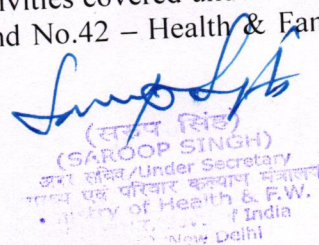 ivities covered and
nd No.42 – Health & Fam
(सरुप सिंह)
(SAROOP SINGH)
अवर सचिव/Under Secretary
एवं परिवार कल्याण मंत्रालय
of Health & F.W.
India
New Delhi